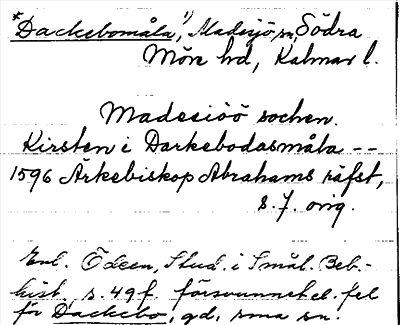 *Dackebomåla,¹⁾ Madesjö sn, Södra
Möre hd, Kalmar l.
Madesiöö sochen.
Kirsten i Darkebodasmåla --
1596 Ärkebiskop Abrahams räfst,
s. 7. orig.
Enl. Ödeen, Stud. i Smål. Beb.-
hist. s. 49 f. försvunnet el. fel
för Dackebo, gd, sma sn.